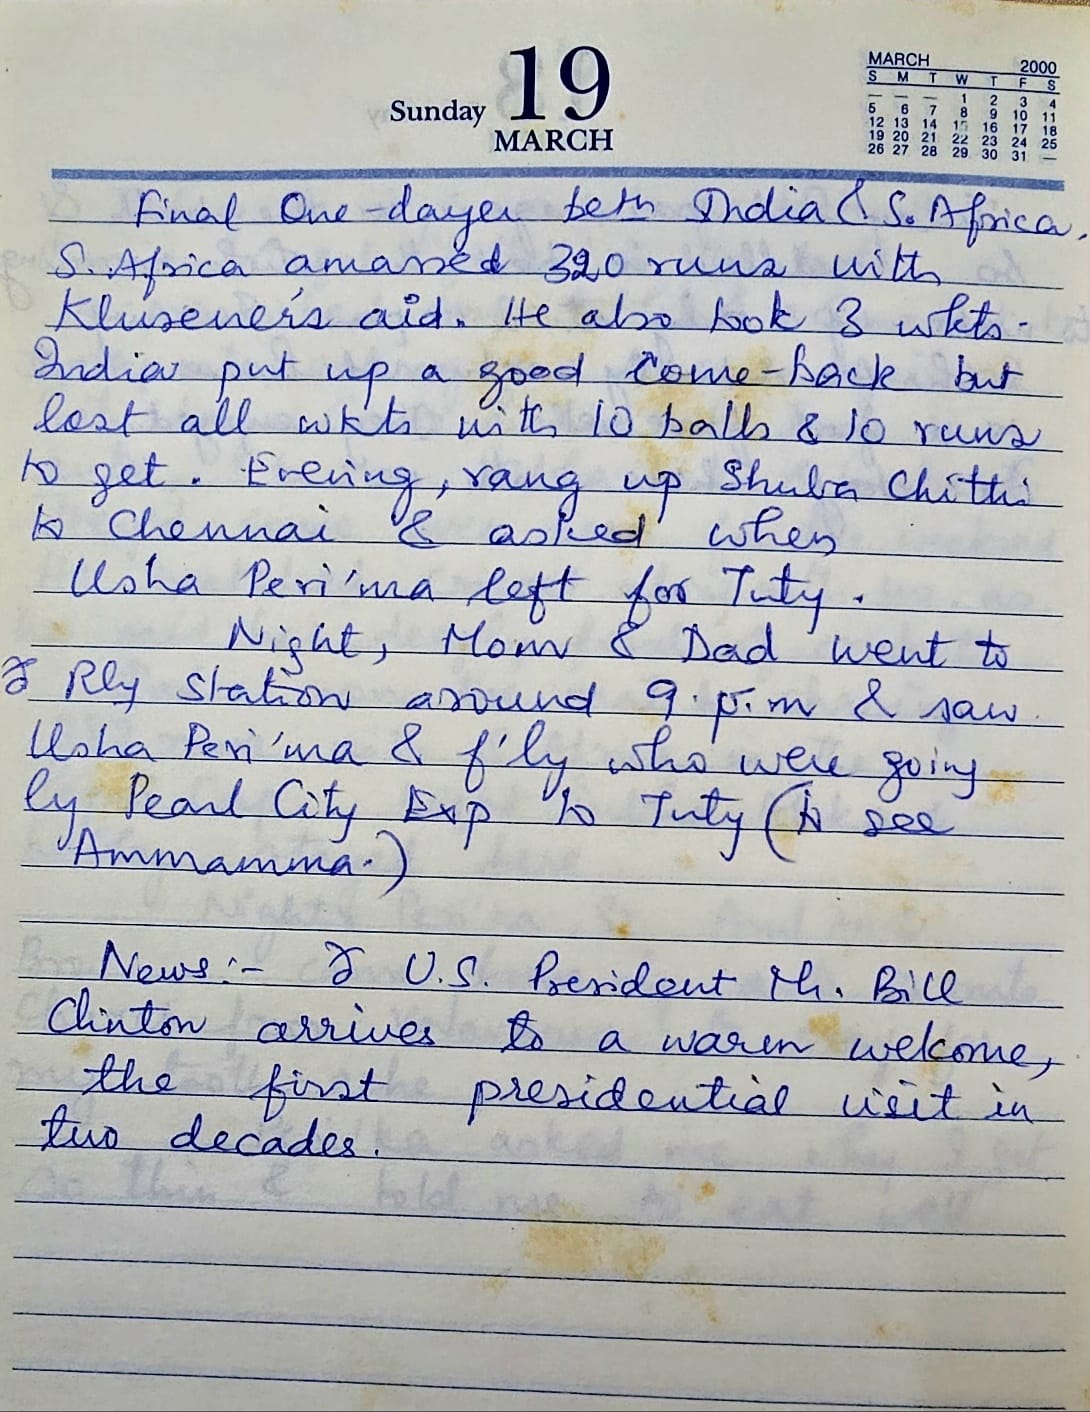 Sunday 19
MARCH
MARCH 2000
S M T W T F S
— — — 1 2 3 4
5 6 7 8 9 10 11
12 13 14 15 16 17 18
19 20 21 22 23 24 25
26 27 28 29 30 31 —
Final One-dayer betn India & S. Africa.
S. Africa amassed 320 runs with
Klusener's aid. He also took 3 wkts.
India put up a good come-back but
lost all wkts with 10 balls & 10 runs
to get. Evening, rang up Shuba Chithi
to Chennai & asked when
Usha Peri'ma left for Tuty.
Night, Mom & Dad went to
Rly Station around 9.p.m & saw
Usha Peri'ma & f'ly who were going
by Pearl City Exp to Tuty (to see
Ammamma.)
News:- U.S. President Mr. Bill
Clinton arrives to a warm welcome,
the first presidential visit in
two decades.